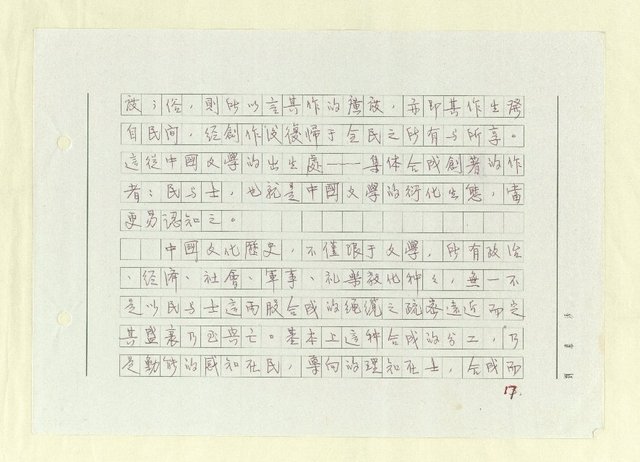 度；俗，則所以言其作的廣放，亦即其作生發
自民间，经創作後復归于全民之所有与所享。
這從中國文學的出生處——集体合成創著的作
者：民与士，也就是中國文學的衍化生態，當
更易認知之。
中國文化歷史，不僅限于文學，所有政治
、经濟、社會、軍事、礼樂教化种々，無一不
是以民与士這兩股合成的绳缆之疏密遠近而定
其盛衰乃至興亡。基本上這种合成的分工，乃
是動能的感知在民，導向的理知在士，合成而
17.